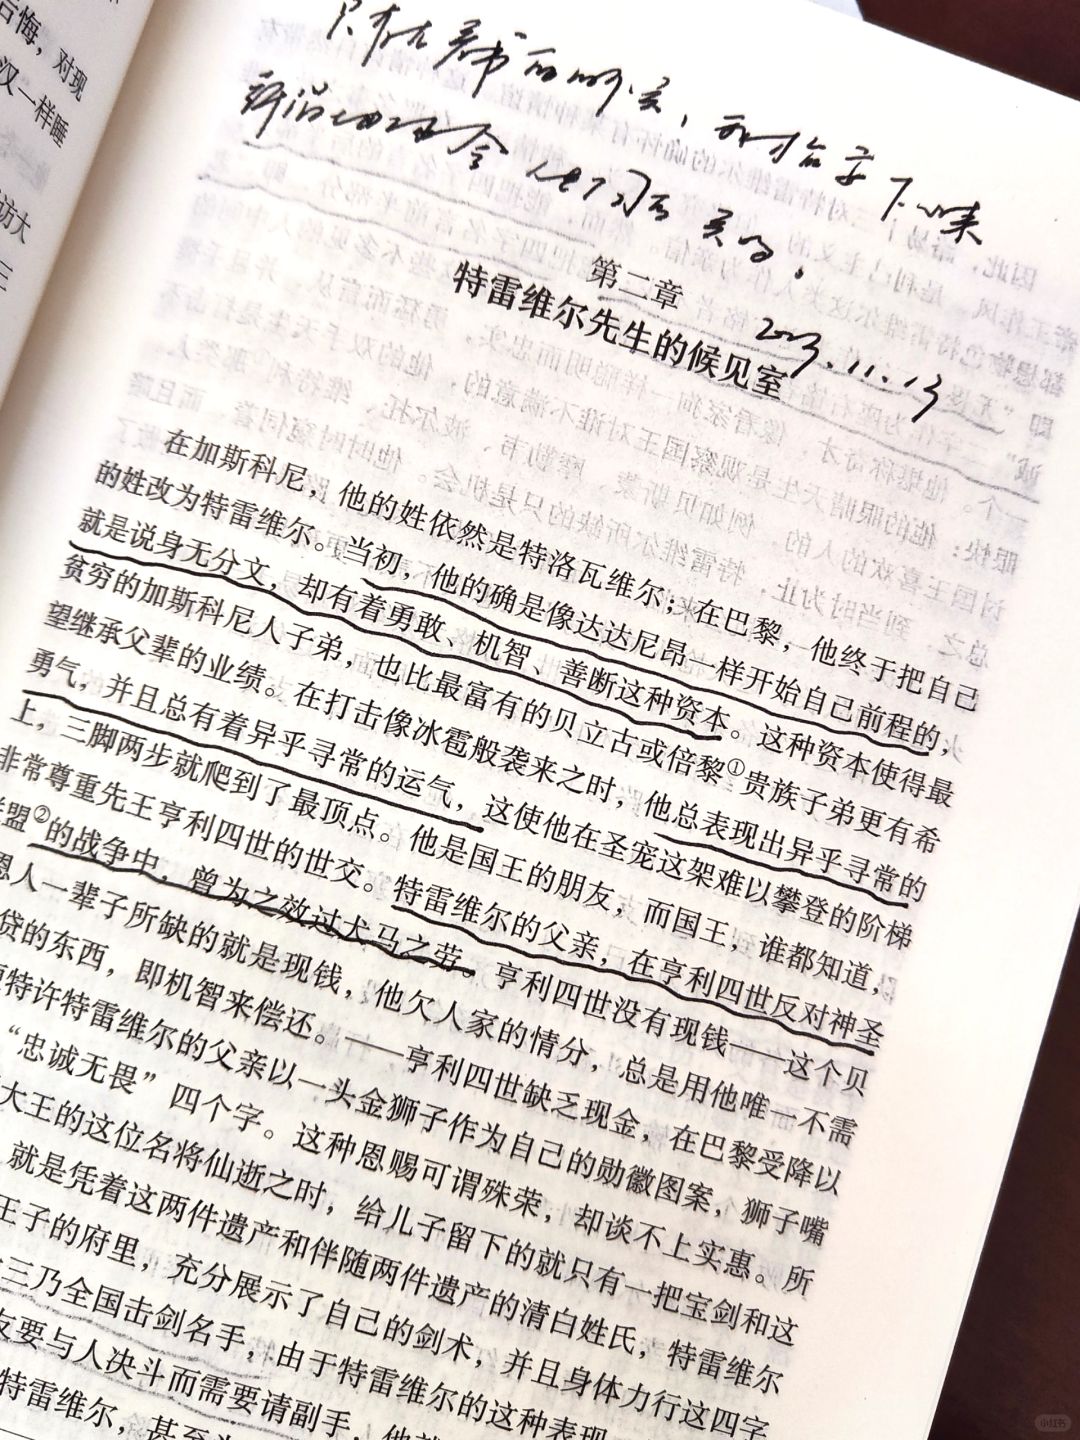 后悔，对现
汉一样睡
访大
三
第二章
特雷维尔先生的候见室
2023.11.13
在加斯科尼，他的姓依然是特洛瓦维尔；在巴黎，他终于把自己
的姓改为特雷维尔。当初，他的确是像达达尼昂一样开始自己前程的，
就是说身无分文，却有着勇敢、机智、善断这种资本。这种资本使得最
贫穷的加斯科尼人子弟，也比最富有的贝立古或倍黎①贵族子弟更有希
望继承父辈的业绩。在打击像冰雹般袭来之时，他总表现出异乎寻常的
勇气，并且总有着异乎寻常的运气，这使他在圣宠这架难以攀登的阶梯
上，三脚两步就爬到了最顶点。他是国王的朋友，而国王，谁都知道，
非常尊重先王亨利四世的世交。特雷维尔的父亲，在亨利四世反对神圣
联盟②的战争中，曾为之效过犬马之劳。亨利四世没有现钱——这个贝
恩人一辈子所缺的就是现钱，他欠人家的情分，总是用他唯一不需
贷的东西，即机智来偿还。——亨利四世缺乏现金，在巴黎受降以
特许特雷维尔的父亲以一头金狮子作为自己的勋徽图案，狮子嘴
“忠诚无畏”四个字。这种恩赐可谓殊荣，却谈不上实惠。所
大王的这位名将仙逝之时，给儿子留下的就只有一把宝剑和这
就是凭着这两件遗产和伴随两件遗产的清白姓氏，特雷维尔
王子的府里，充分展示了自己的剑术，并且身体力行这四字
三乃全国击剑名手，由于特雷维尔的这种表现
友要与人决斗而需要请副手，他就
特雷维尔，甚至
小红书